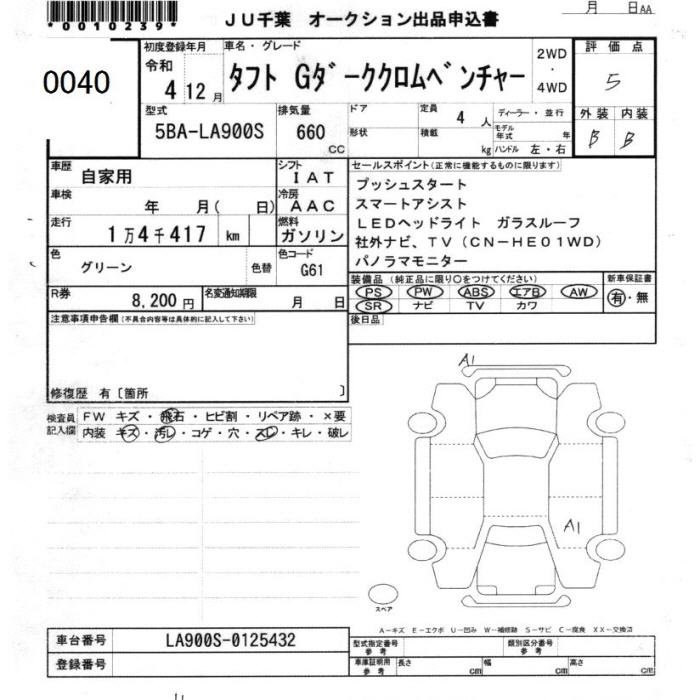 *0010239*
JU千葉 オークション出品申込書
月 日AA
0040
初度登録年月
令和
4 12月
車名・グレード
タフト Gダーククロムベンチャー
2WD
・
4WD
評価点
5
外装 内装
B B
型式
5BA-LA900S
排気量
660
CC
ドア
形状
定員
4 人
積載
kg
ディーラー・並行
モデル年式 年
ハンドル 左・右
車歴
自家用
車検
年 月( 日)
走行
1万4千417 km
色
グリーン
色替
シフト
IAT
冷房
AAC
燃料
ガソリン
色コード
G61
R券
8,200円
名変通知期限
月 日
セールスポイント(正常に機能するものに限ります)
プッシュスタート
スマートアシスト
LEDヘッドライト ガラスルーフ
社外ナビ、TV(CN-HE01WD)
パノラマモニター
装備品(純正品に限り○をつけてください)
PS PW ABS エアB AW
SR ナビ TV カワ
新車保証書
有・無
後日品
注意事項申告欄(不具合内容等は具体的に記入して下さい)
修復歴 有〔箇所 〕
検査員記入欄
FW キズ・飛石・ヒビ割・リペア跡・×要
内装 キズ・汚レ・コゲ・穴・スレ・キレ・破レ
A1
A1
スペア
A-キズ E-エクボ U-凹み W-補修跡 S-サビ C-腐食 XX-交換済
車台番号
LA900S-0125432
登録番号
型式指定番号
参考
類別区分番号
参考
車庫証明用
参考
長さ cm
幅 cm
高さ cm